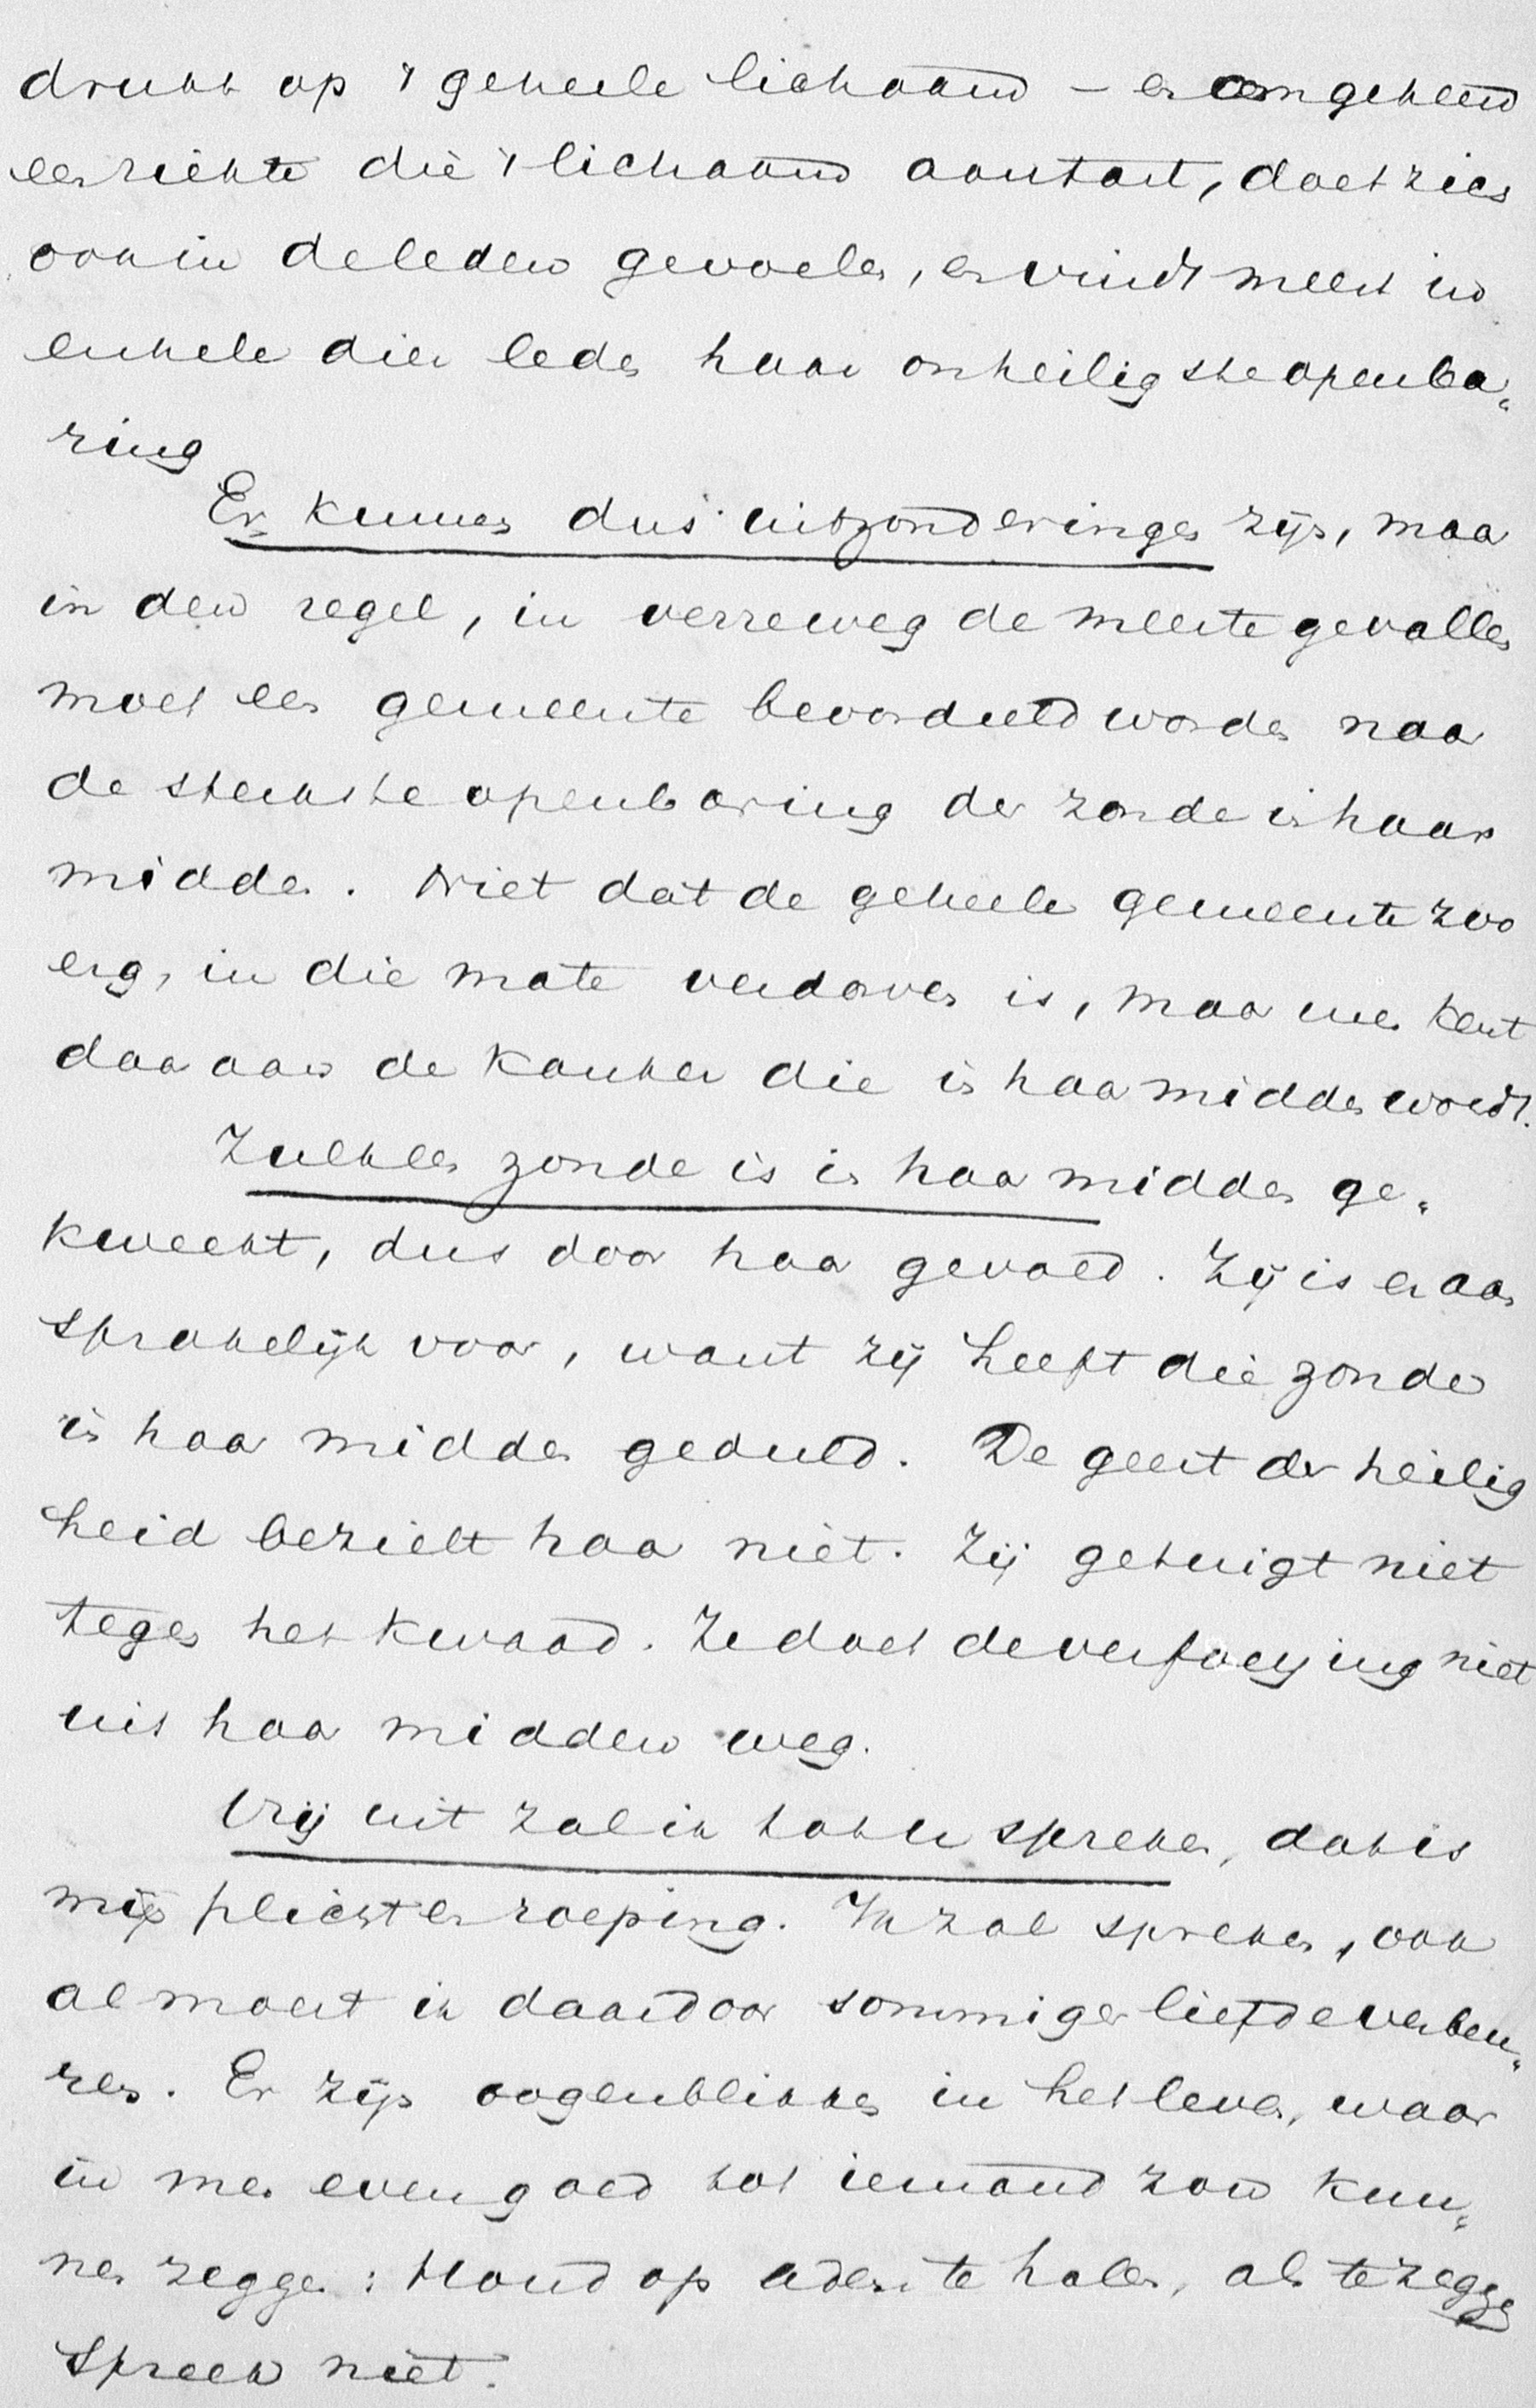 drukt op 't geheele lichaam – en omgekeerd
een ziekte die 't lichaam aantast, doet zich
ook in de leden gevoelen, en vindt meest in
enkele dier leden haar onheiligste openba„
ring
Er kunnen dus uitzonderingen zijn, maar
in den regel, in verreweg de meeste gevallen
moet een gemeente beoordeeld worden naar
de sterkste openbaring der zonde in haar
midden. Niet dat de geheele gemeente zoo
erg, in die mate verdorven is, maar men kent
daaraan de kanker die in haar midden woedt.
Zulk een zonde is in haar midden ge„
kweekt, dus door haar gevoed. Zij is er aan
sprakelijk voor, want zij heeft die zonde
in haar midden geduld. De geest der heilig
heid bezielt haar niet. Zij getuigt niet
tegen het kwaad. Ze doet de verfoeijing niet
uit haar midden weg.
Vrij uit zal ik tot u spreken, dat is
mijn plicht en roeping. Ik zal spreken, ook
al moest ik daardoor sommiger liefde verbeu„
ren. Er zijn oogenblikken in het leven, waar
in men even goed tot iemand zou kun„
nen zeggen: Houd op adem te halen, als te zeggen
spreek niet.